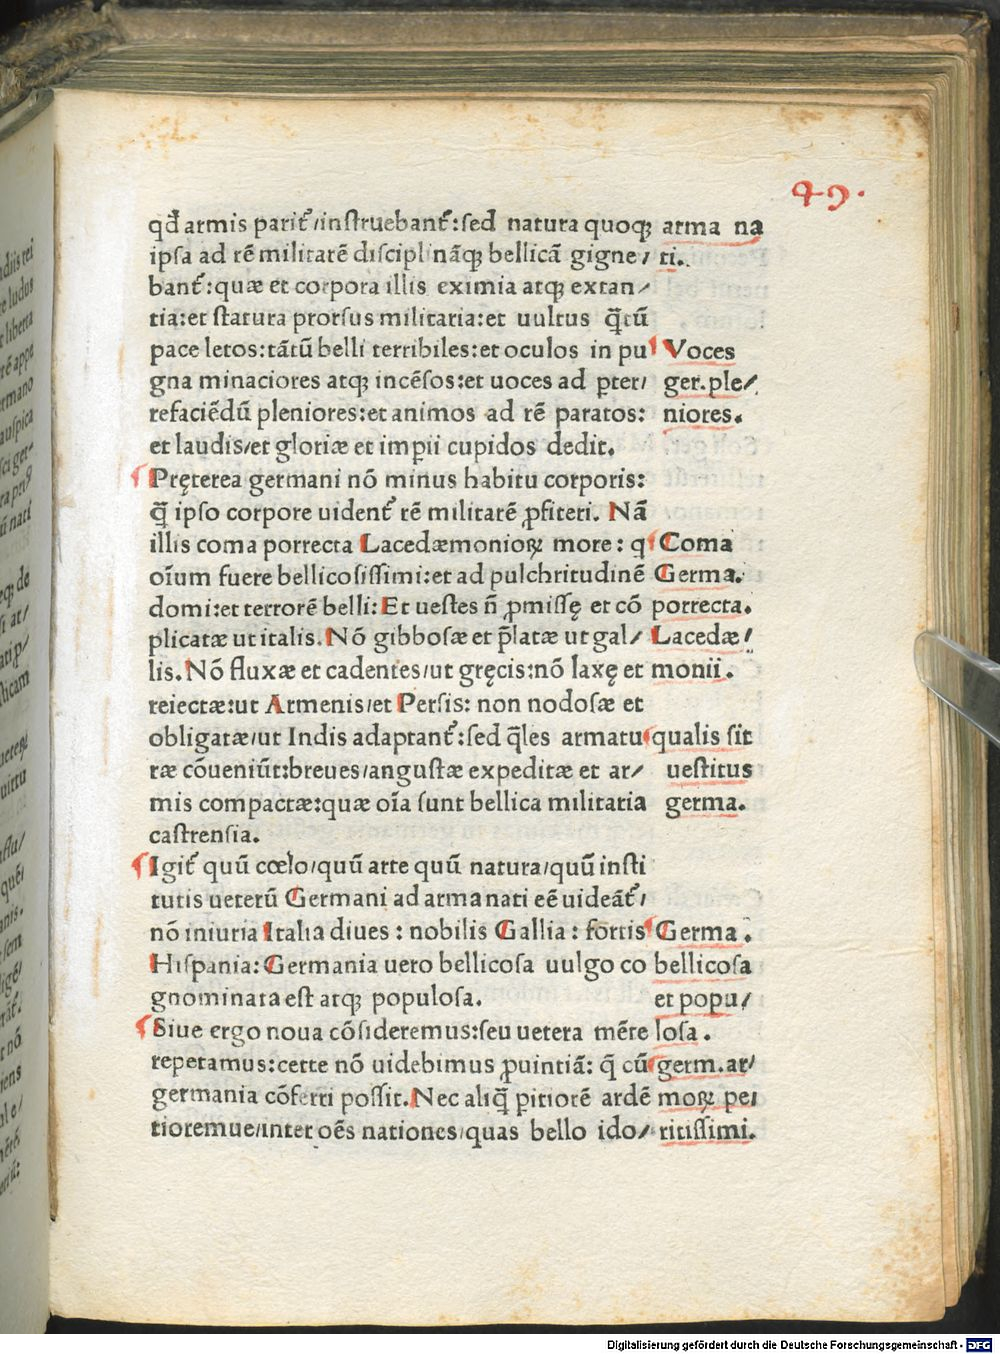 49.
qđ armis parit᷑/instruebant᷑:sed natura quoqꝫ
ipsa ad rē militarē discipl nāqꝫ bellicā gigne/
bant᷑:quæ et corpora illis eximia atqꝫ extan/
tia:et statura prorsus militaria:et uultus q̄tū
pace letos:tātū belli terribiles:et oculos in pu
gna minaciores atqꝫ incēsos:et uoces ad ꝑter/
refaciēdū pleniores:et animos ad rē paratos:
et laudis/et gloriæ et impii cupidos dedit.
Pręterea germani nō minus habitu corporis:
q̄ ipso corpore uident᷑ rē militarē ꝓfiteri. Nā
illis coma porrecta Lacedæmonioꝝ more: q
oīum fuere bellicosissimi:et ad pulchritudinē
domi:et terrorē belli:Et uestes n̄ ꝓmissę et cō
plicatæ ut italis. Nō gibbosæ et p̄latæ ut gal/
lis. Nō fluxæ et cadentes/ut gręcis:nō laxę et
reiectæ:ut Armenis/et Persis: non nodosæ et
obligatæ/ut Indis adaptant᷑:sed q̄les armatu
ræ cōueniūt:breues/angustæ expeditæ et ar/
mis compactæ:quæ oīa sunt bellica militaria
castrensia.
Igit᷑ quū cœlo/quū arte quū natura/quū insti
tutis ueterū Germani ad arma nati eē uideāt᷑/
nō iniuria Italia diues : nobilis Gallia : fortis
Hispania: Germania uero bellicosa uulgo co
gnominata est atqꝫ populosa.
Siue ergo noua cōsideremus:seu uetera mēte
repetamus:certe nō uidebimus ꝓuintiā: q̄ cū
germania cōferri possit. Nec aliq̄ ꝑitiorē ardē
tioremue/inter oēs nationes/quas bello ido/
arma na
ti.
Voces
ger.ple/
niores.
Coma
Germa.
porrecta.
Lacedæ/
monii.
qualis sit
uestitus
germa.
Germa.
bellicosa
et popu/
losa.
germ.ar/
moꝝ pe/
ritissimi.
Digitalisierung gefördert durch die Deutsche Forschungsgemeinschaft - DFG